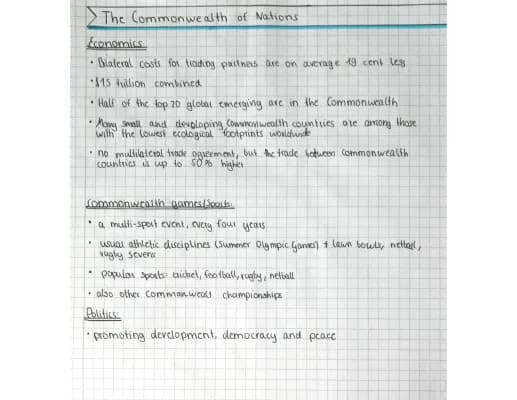 The Commonwealth of Nations
Economics:
• Bilateral costs for trading partners are on average 19 cent less
• $13 trillion combined
• Half of the top 20 global emerging are in the Commonwealth
• Many small and developing Commonwealth countries are among those
with the lowest ecological footprints worldwide
• no multilateral trade agreement, but the trade between commonwealth
countries is up to 50% higher
Commonwealth games/Sports:
• a multi-sport event, every four years
• usual athletic disciplines (Summer Olympic Games) + lawn bowls, netball,
rugby sevens
• popular sports: cricket, football, rugby, netball
• also other Commonwealt championships
Politics:
• promoting development, democracy and peace